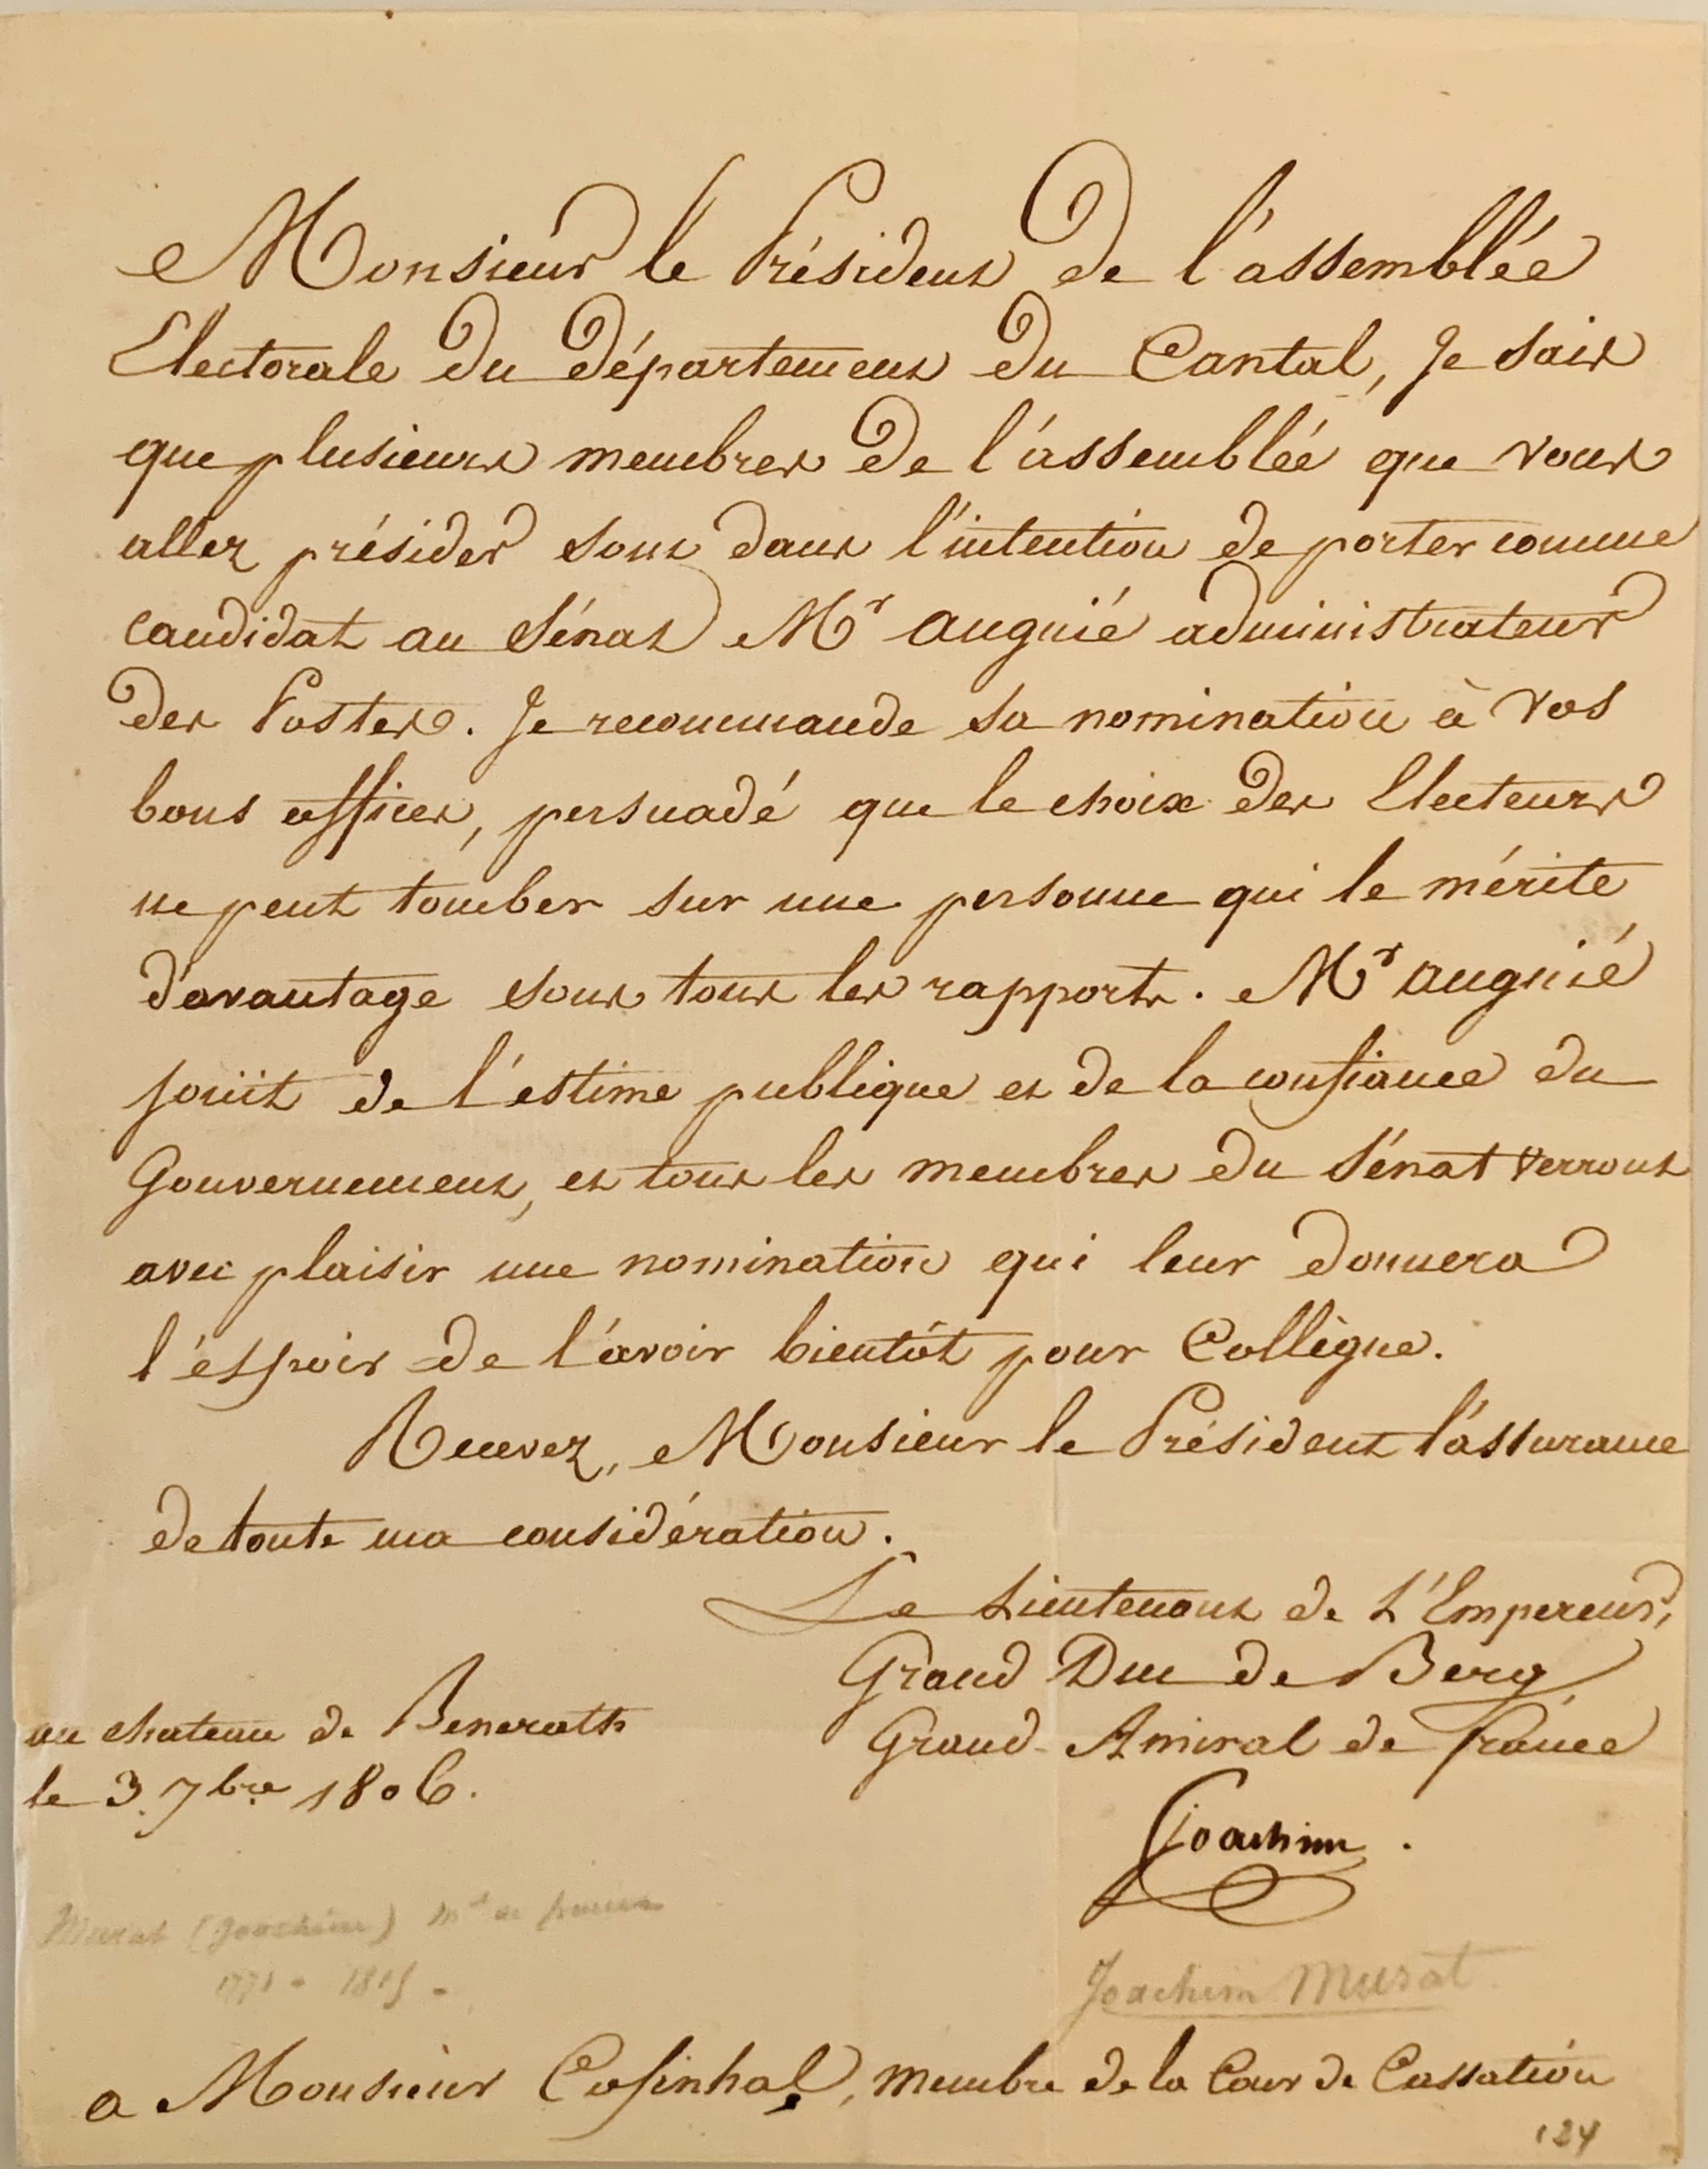 Monsieur le Président de l'assemblée
Electorale du département du Cantal, Je sais
que plusieurs membres de l'assemblée que vous
allez présider sont dans l'intention de porter comme
candidat au Sénat Mr auguié administrateur
des Postes. Je recommande sa nomination à vos
bons offices, persuadé que le choix des Electeurs
ne peut tomber sur une personne qui le mérite
d'avantage sous tous les rapports. Mr auguié
jouit de l'estime publique et de la confiance du
Gouvernement, et tous les membres du Sénat verront
avec plaisir une nomination qui leur donnera
l'espoir de l'avoir bientôt pour Collègue.
Recevez, Monsieur le Président l'assurance
de toute ma considération.
Le Lieutenant de L'Empereur,
Grand Duc de Berg
Grand Amiral de france
au chateau de Benerath
le 3. 7bre 1806.
Joachim.
Murat (Joachim) Mal de france
1771 - 1815 -
Joachim Murat
a Monsieur Cofinhal, membre de la Cour de Cassation
124